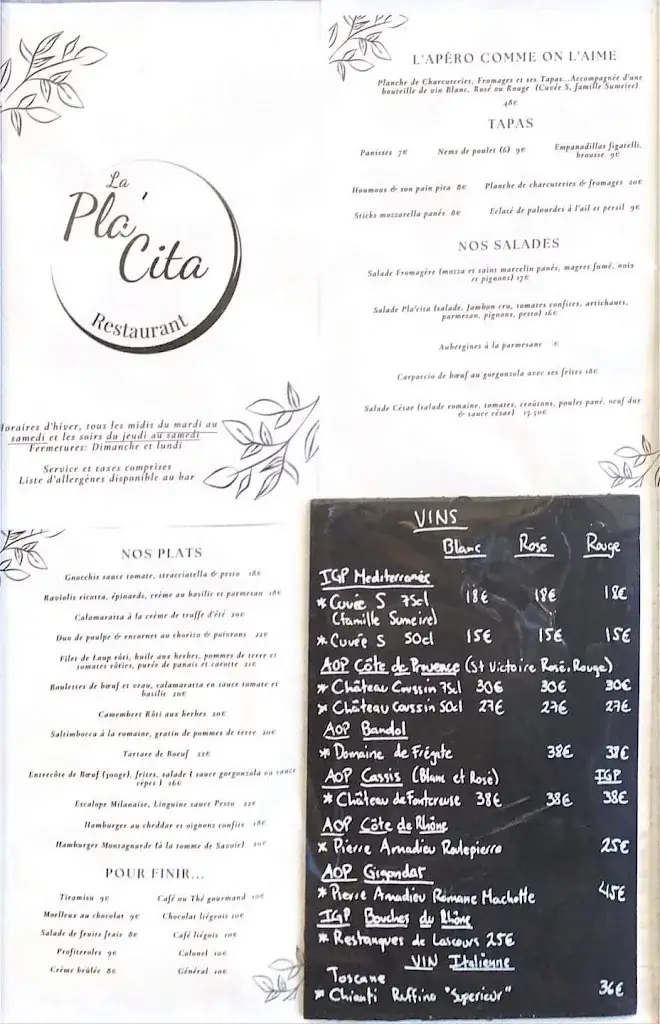 La
Pla'
Cita
Restaurant
Horaires d'hiver, tous les midis du mardi au
samedi et les soirs du jeudi au samedi
Fermetures: Dimanche et lundi
Service et taxes comprises
Liste d'allergènes disponible au bar
L'APÉRO COMME ON L'AIME
Planche de Charcuteries, Fromages et ses Tapas...Accompagnée d'une
bouteille de vin Blanc, Rosé ou Rouge (Cuvée S, famille Sumeire)
48€
TAPAS
Panisses 7€ Nems de poulet (6) 9€ Empanadillas figatelli,
brousse 9€
Houmous & son pain pita 8€ Planche de charcuteries & fromages 20€
Sticks mozzarella panés 8€ Eclaté de palourdes à l'ail et persil 9€
NOS SALADES
Salade Fromagère (mozza et saint marcelin panés, magret fumé, noix
et pignons) 17€
Salade Pla'cita (salade, Jambon cru, tomates confites, artichauts,
parmesan, pignons, pesto) 16€
Aubergines à la parmesane €
Carpaccio de bœuf au gorgonzola avec ses frites 18€
Salade César (salade romaine, tomates, croûtons, poulet pané, oeuf dur
& sauce césar) 15.50€
NOS PLATS
Gnocchis sauce tomate, stracciatella & pesto 18€
Raviolis ricotta, épinards, crème au basilic et parmesan 18€
Calamaratta à la crème de truffe d'été 20€
Duo de poulpe & encornet au chorizo & poivrons 22€
Filet de Loup rôti, huile aux herbes, pommes de terre et
tomates rôties, purée de panais et carotte 21€
Boulettes de bœuf et veau, calamaratta en sauce tomate et
basilic 20€
Camembert Rôti aux herbes 20€
Saltimbocca à la romaine, gratin de pommes de terre 20€
Tartare de Boeuf 22€
Entrecôte de Bœuf (300gr), frites, salade ( sauce gorgonzola ou sauce
cèpes ) 26€
Escalope Milanaise, Linguine sauce Pesto 22€
Hamburger au cheddar et oignons confits 18€
Hamburger Montagnarde (à la tomme de Savoie) 20€
POUR FINIR...
Tiramisu 9€ Café ou Thé gourmand 10€
Moelleux au chocolat 9€ Chocolat liégeois 10€
Salade de fruits frais 8€ Café liégois 10€
Profiteroles 9€ Colonel 10€
Crème brûlée 8€ Général 10€
VINS
Blanc Rosé Rouge
IGP Mediterranée
* Cuvée S 75cl 18€ 18€ 18€
(famille Sumeire)
* Cuvée S 50cl 15€ 15€ 15€
AOP Côte de Provence (St Victoire Rosé, Rouge)
* Château Coussin 75cl 30€ 30€ 30€
* Château Coussin 50cl 27€ 27€ 27€
AOP Bandol
* Domaine de Frégate 38€ 38€
AOP Cassis (Blanc et Rosé) IGP
* Château de Fontcreuse 38€ 38€ 38€
AOP Côte de Rhône
* Pierre Amadieu Roulepierre 25€
AOP Gigondas
* Pierre Amadieu Romane Machotte 45€
IGP Bouches du Rhône
* Restanques de Lascours 25€
VIN Italienne
Toscane
* Chianti Ruffino "Superieur" 36€